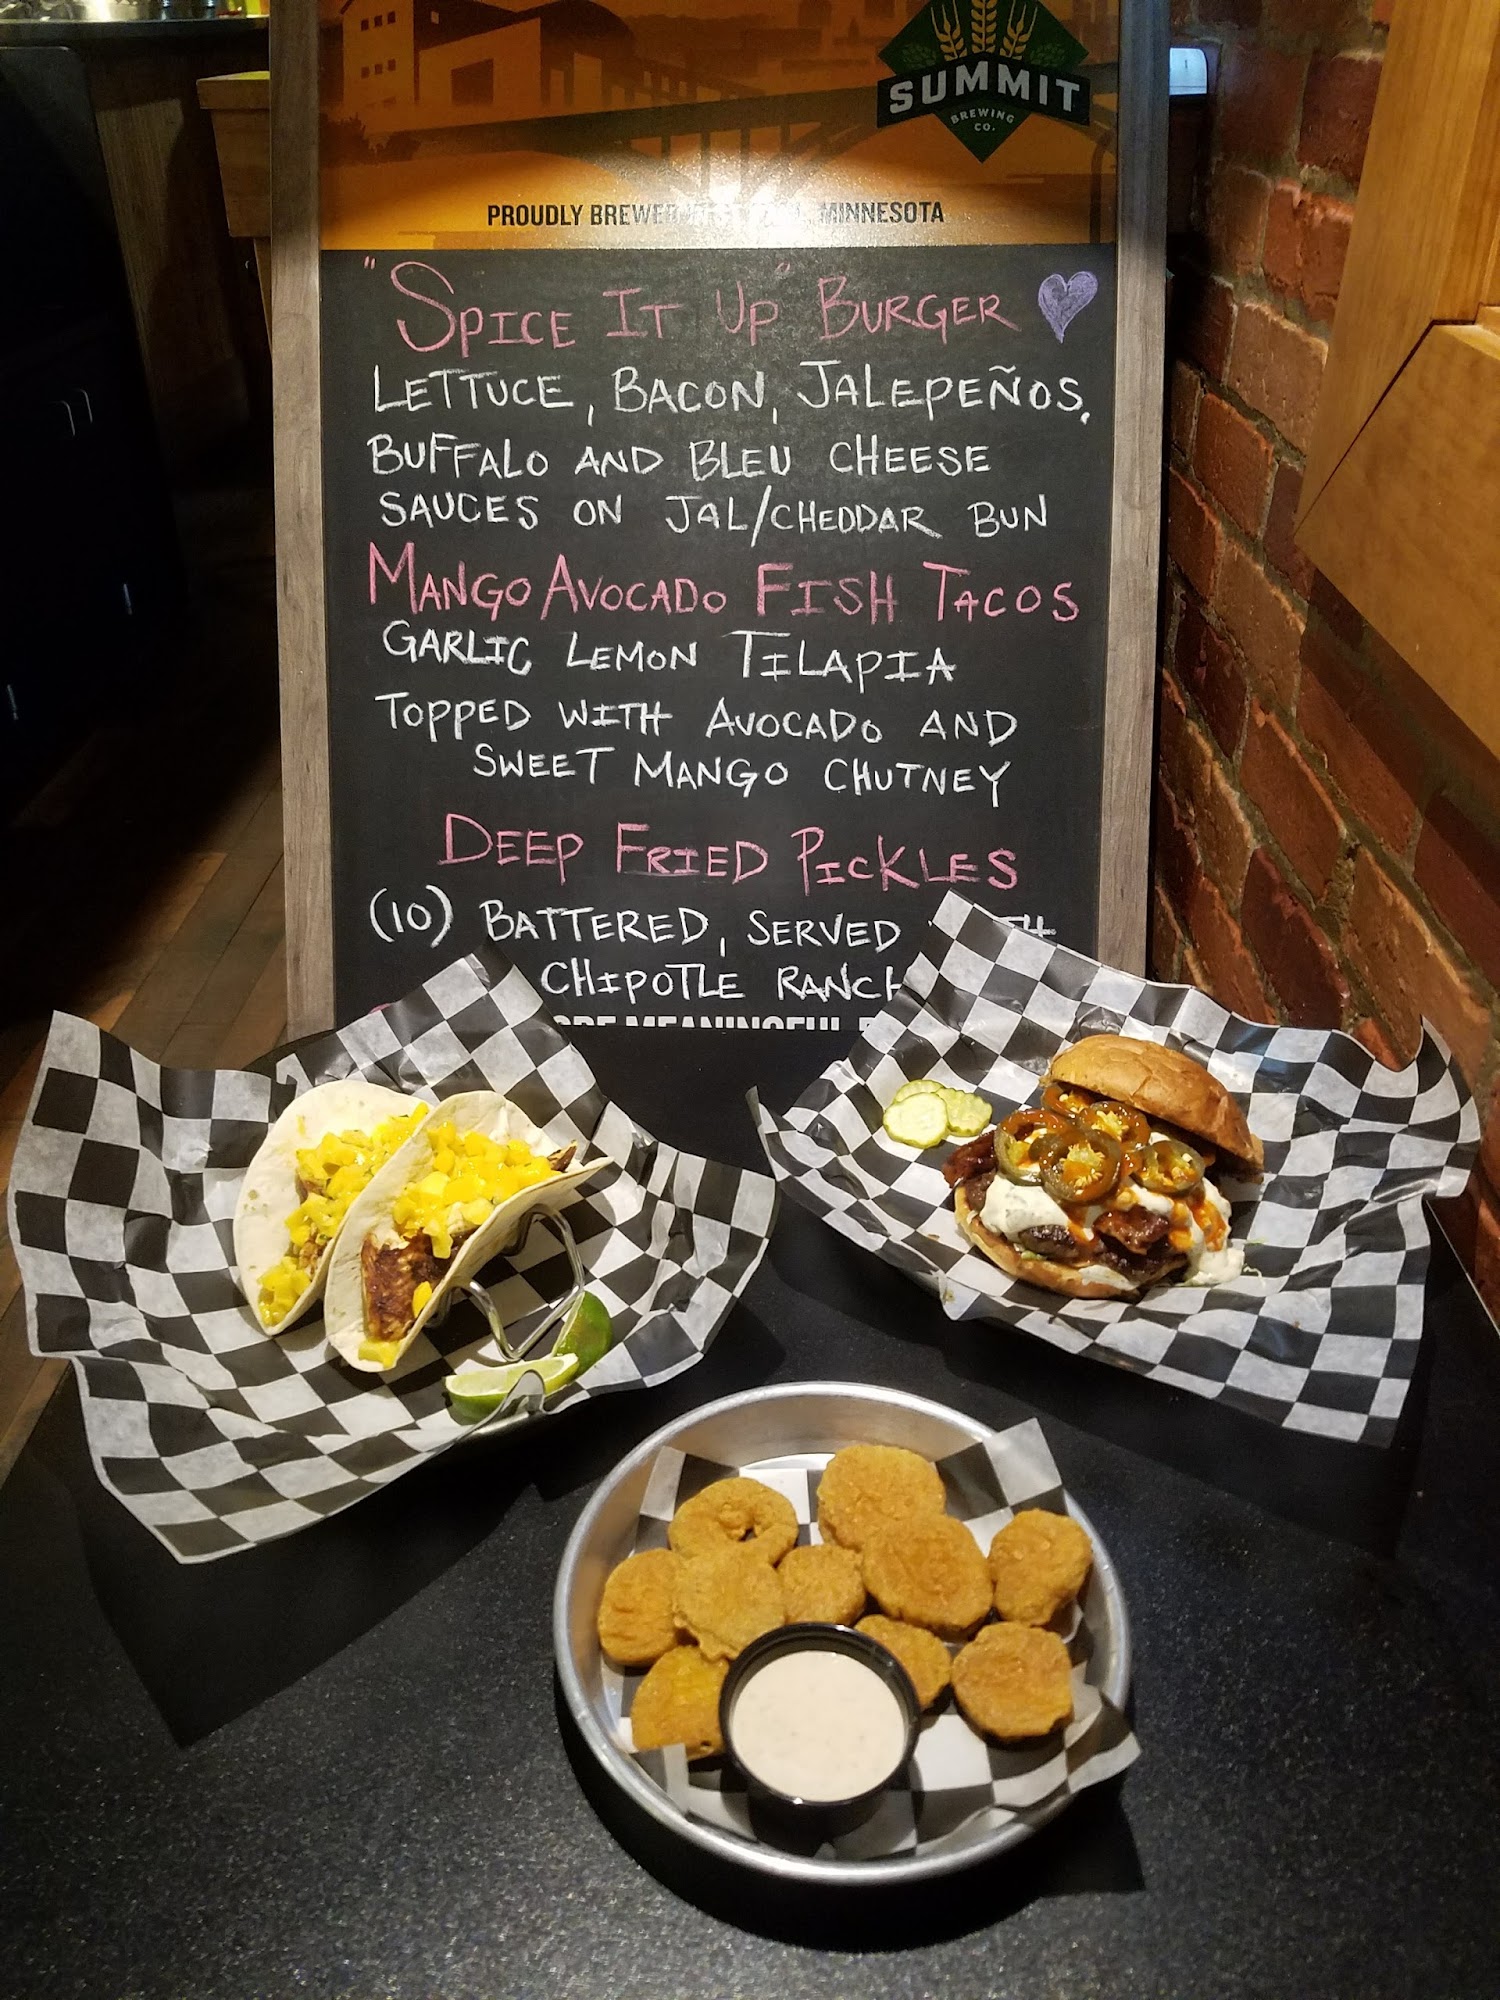 SUMMIT
BREWING
CO.
PROUDLY BREWED MINNESOTA
"SPICE IT UP" BURGER
LETTUCE, BACON, JALEPEÑOS,
BUFFALO AND BLEU CHEESE
SAUCES ON JAL/CHEDDAR BUN
MANGO AVOCADO FISH TACOS
GARLIC LEMON TILAPIA
TOPPED WITH AVOCADO AND
SWEET MANGO CHUTNEY
DEEP FRIED PICKLES
(10) BATTERED, SERVED WITH
CHIPOTLE RANCH
MEANINGFUL